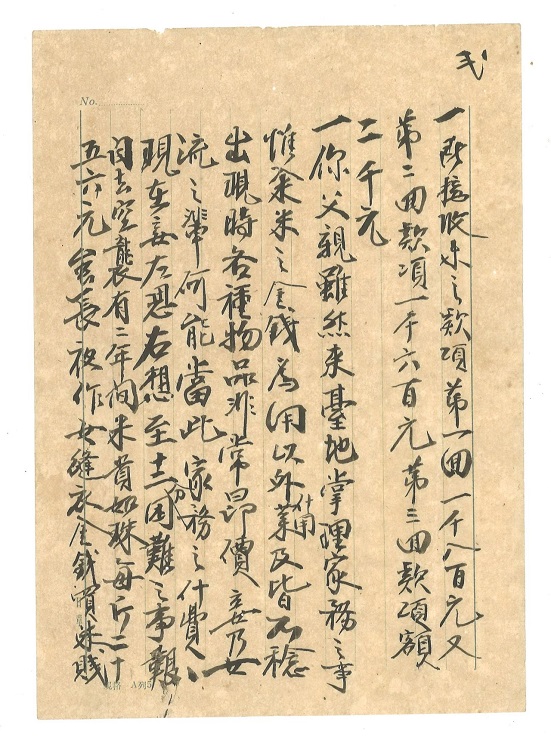 弍
No.
一所擾收來之款項第一回一千八百元又
第二回款項一千六百元第三回款項額
二千元
一你父親雖然來臺地掌理家務之事
惟籴米之金錢為開以外菜什用及皆不稔
出現時各種物品非常昂價妾乃女
流之輩何能當此家務之什費
現在妾左思右想至十二分困難之事艱
自去空襲有二年間米貴如珠每斤二十
五六元舍長夜作女縫衣金錢買米賤
A列5